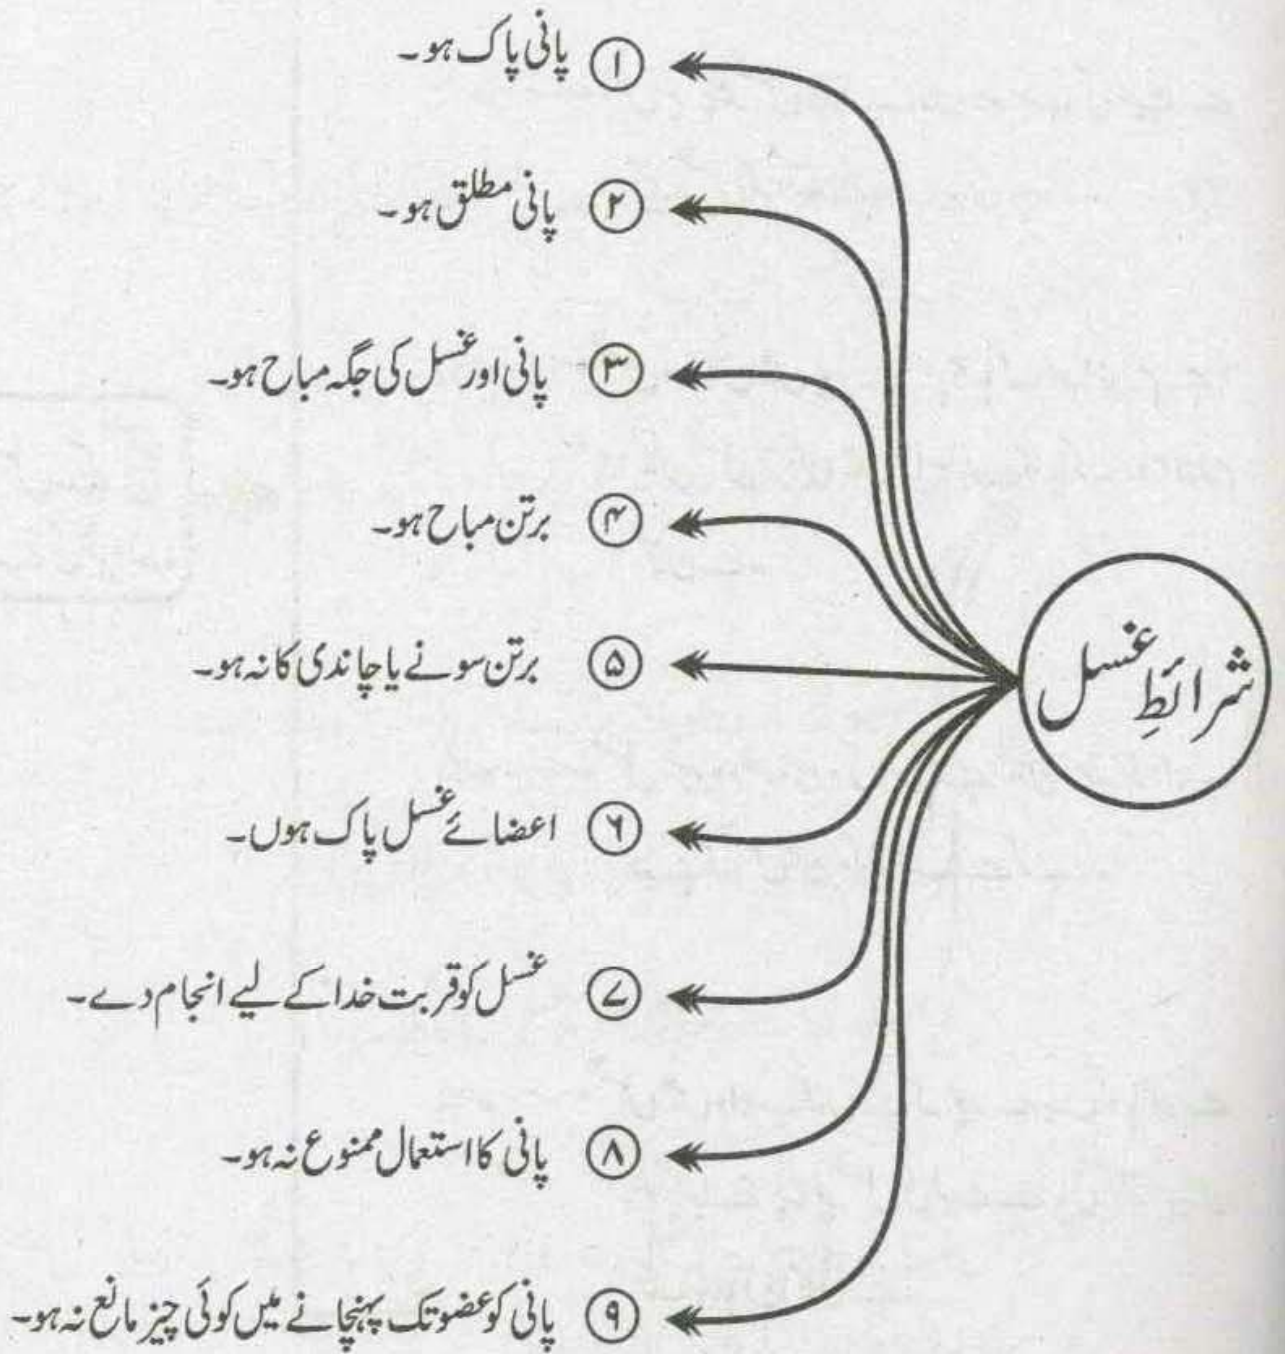 شرائطِ غسل
۱ پانی پاک ہو۔
۲ پانی مطلق ہو۔
۳ پانی اور غسل کی جگہ مباح ہو۔
۴ برتن مباح ہو۔
۵ برتن سونے یا چاندی کا نہ ہو۔
۶ اعضائے غسل پاک ہوں۔
۷ غسل کو قربت خدا کے لیے انجام دے۔
۸ پانی کا استعمال ممنوع نہ ہو۔
۹ پانی کو عضو تک پہنچانے میں کوئی چیز مانع نہ ہو۔